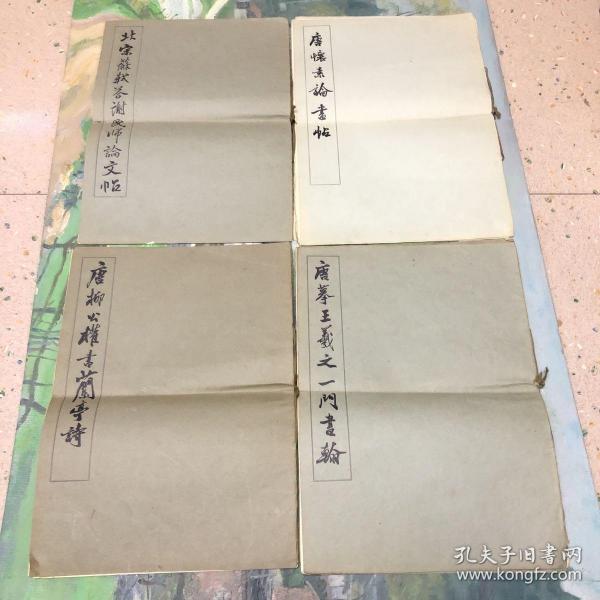 北宋蘇軾答謝民師論文帖
唐懷素論書帖
唐柳公權書蘭亭詩
唐摹王羲之一門書翰
孔夫子旧书网
www.kongfz.com